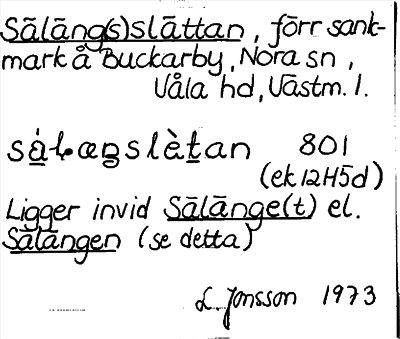 Sälängs(s)slättan, förr sank-
mark å Buckarby, Nora sn,
Våla hd, Västm. l.
sȧ̱læŋslèṯan 801
(ek 12H5d)
Ligger invid Sälänge(t) el.
Sälängen (se detta)
L. Jonsson 1973